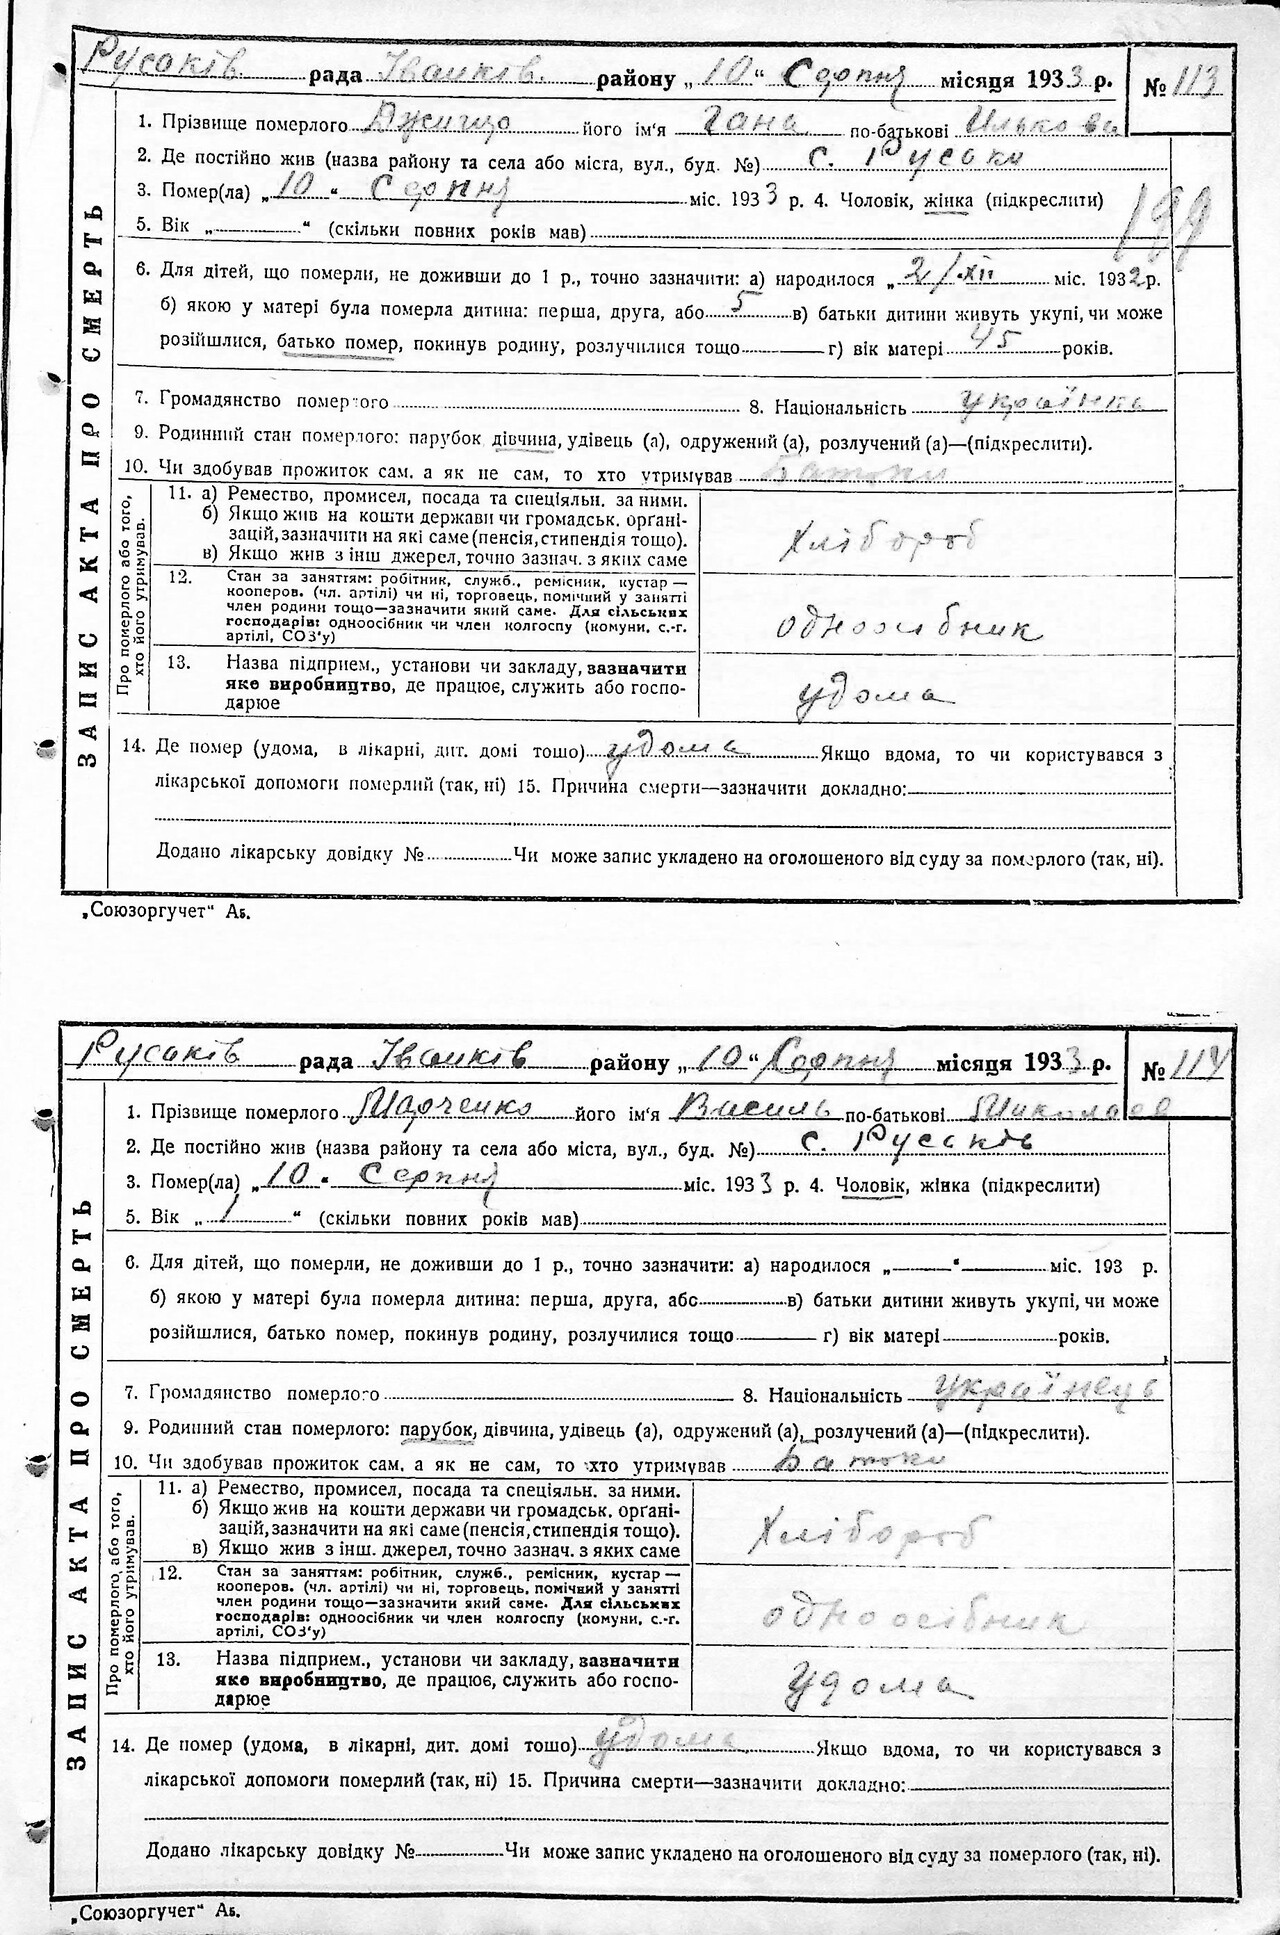 Русаків рада Іванків. району „ 10 “ Серпня місяця 1933 р. № 113
1. Прізвище померлого його ім'я Гана по-батькові Ількова
2. Де постійно жив (назва району та села або міста, вул., буд. №) с. Русаки
3. Помер(ла) „ 10 “ Серпня міс. 1933 р. 4. Чоловік, жінка (підкреслити)
199
5. Вік „ “ (скільки повних років мав)
6. Для дітей, що померли, не доживши до 1 р., точно зазначити: а) народилося „ 2/XII міс. 1932 р.
б) якою у матері була померла дитина: перша, друга, або 5 в) батьки дитини живуть укупі, чи може
розійшлися, батько помер, покинув родину, розлучилися тощо г) вік матері 45 років.
7. Громадянство померлого 8. Національність українка
9. Родинний стан померлого: парубок дівчина, удівець (а), одружений (а), розлучений (а)—(підкреслити).
10. Чи здобував прожиток сам, а як не сам, то хто утримував Батьки
ЗАПИС АКТА ПРО СМЕРТЬ
Про померлого або того,
хто його утримував.
11. а) Ремество, промисел, посада та спеціяльн. за ними.
б) Якщо жив на кошти держави чи громадськ. орґані-
зацій, зазначити на які саме (пенсія, стипендія тощо).
в) Якщо жив з інш джерел, точно зазнач. з яких саме
Хлібороб
12. Стан за заняттям: робітник, служб., ремісник, кустар —
кооперов. (чл. артілі) чи ні, торговець, помічний у занятті
член родини тощо—зазначити який саме. Для сільських
господарів: одноосібник чи член колгоспу (комуни, с.-г.
артілі, СОЗ'у)
одноосібник
13. Назва підприєм., установи чи закладу, зазначити
яке виробництво, де працює, служить або госпо-
дарює
удома
14. Де помер (удома, в лікарні, дит. домі тошо) удома Якщо вдома, то чи користувався з
лікарської допомоги померлий (так, ні) 15. Причина смерти—зазначити докладно:
Додано лікарську довідку № Чи може запис укладено на оголошеного від суду за померлого (так, ні).
„Союзоргучет“ Аб.
Русаків рада Іванків району „ 10 “ Серпня місяця 1933 р. № 114
1. Прізвище померлого Марченко його ім'я Василь по-батькові Миколаєв
2. Де постійно жив (назва району та села або міста, вул., буд. №) с. Русаків
3. Помер(ла) „ 10 “ Серпня міс. 1933 р. 4. Чоловік, жінка (підкреслити)
5. Вік „ 1 “ (скільки повних років мав)
6. Для дітей, що померли, не доживши до 1 р., точно зазначити: а) народилося „ “ міс. 193 р.
б) якою у матері була померла дитина: перша, друга, або в) батьки дитини живуть укупі, чи може
розійшлися, батько помер, покинув родину, розлучилися тощо г) вік матері років.
7. Громадянство померлого 8. Національність українець
9. Родинний стан померлого: парубок, дівчина, удівець (а), одружений (а), розлучений (а)—(підкреслити).
10. Чи здобував прожиток сам, а як не сам, то хто утримував Батьки
ЗАПИС АКТА ПРО СМЕРТЬ
Про померлого, або того,
хто його утримував.
11. а) Ремество, промисел, посада та спеціяльн. за ними.
б) Якщо жив на кошти держави чи громадськ. орґані-
зацій, зазначити на які саме (пенсія, стипендія тощо).
в) Якщо жив з інш. джерел, точно зазнач. з яких саме
Хлібороб
12. Стан за заняттям: робітник, служб., ремісник, кустар —
кооперов. (чл. артілі) чи ні, торговець, помічний у занятті
член родини тощо—зазначити який саме. Для сільських
господарів: одноосібник чи член колгоспу (комуни, с.-г.
артілі, СОЗ'у)
одноосібник
13. Назва підприєм., установи чи закладу, зазначити
яке виробництво, де працює, служить або госпо-
дарює
Удома
14. Де помер (удома, в лікарні, дит. домі тошо) удома Якщо вдома, то чи користувався з
лікарської допомоги померлий (так, ні) 15. Причина смерти—зазначити докладно:
Додано лікарську довідку № Чи може запис укладено на оголошеного від суду за померлого (так, ні).
„Союзоргучет“ Аб.